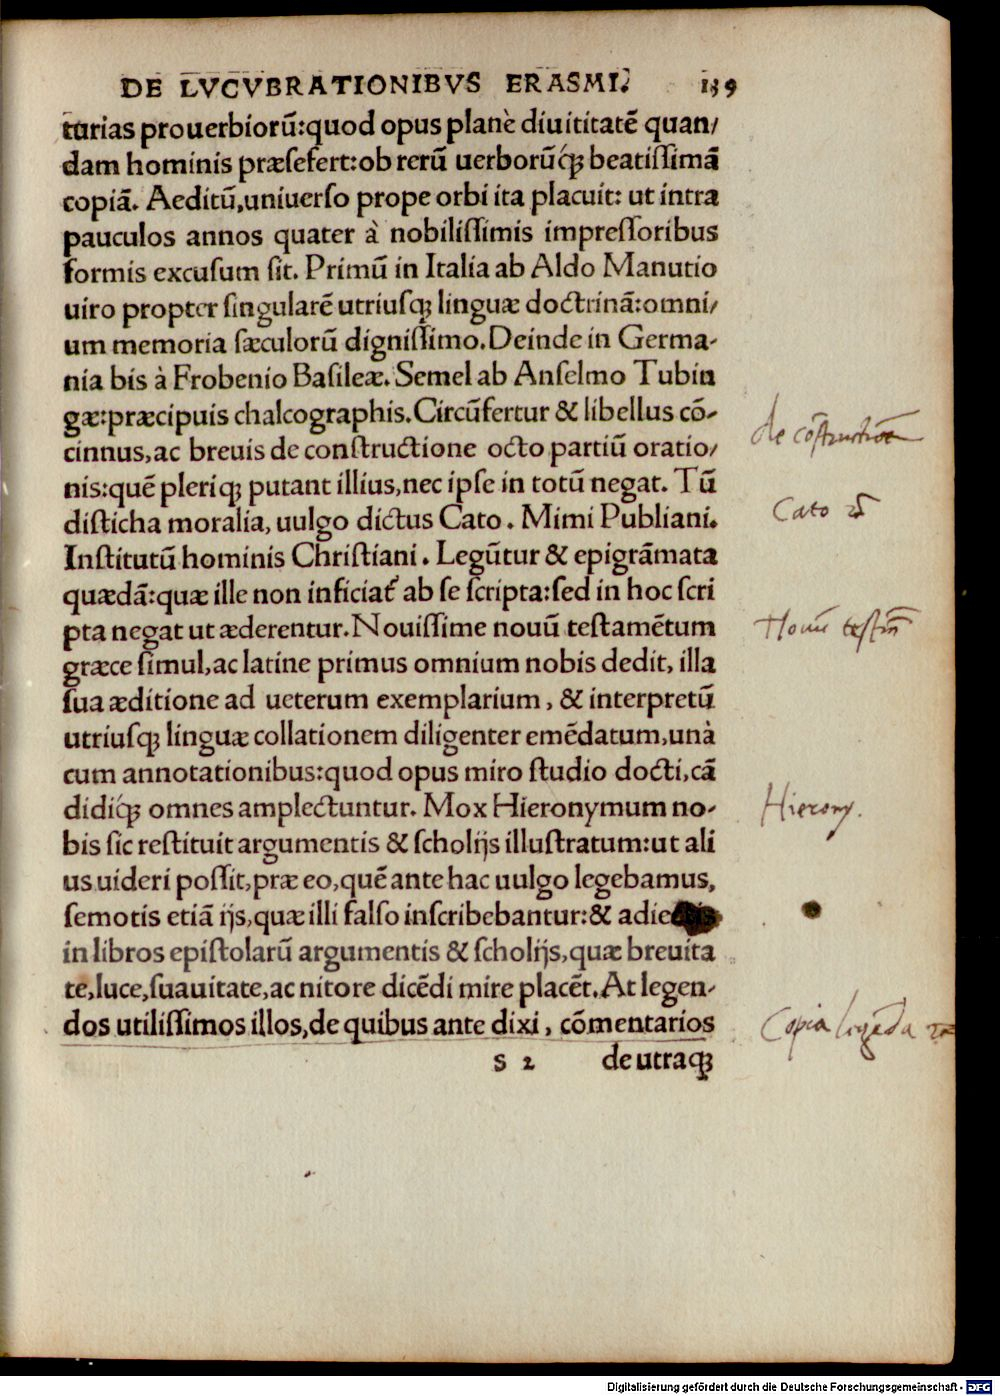 DE LVCVBRATIONIBVS ERASMI. 139
turias prouerbiorū:quod opus planè diuititatē quan/
dam hominis præsefert:ob rerū uerborūq́ꝫ beatissimā
copiā. Aeditū,uniuerso prope orbi ita placuit: ut intra
pauculos annos quater à nobilissimis impressoribus
formis excusum sit. Primū in Italia ab Aldo Manutio
uiro propter singularē utriusqꝫ linguæ doctrinā:omni/
um memoria sæculorū dignissimo. Deinde in Germa-
nia bis à Frobenio Basileæ. Semel ab Anselmo Tubin
gæ:præcipuis chalcographis. Circūfertur & libellus cō-
cinnus,ac breuis de constructione octo partiū oratio/
nis:quē pleriqꝫ putant illius,nec ipse in totū negat. Tū
disticha moralia, uulgo dictus Cato. Mimi Publiani.
Institutū hominis Christiani. Legūtur & epigrāmata
quædā:quæ ille non inficiat᷑ ab se scripta:sed in hoc scri
pta negat ut æderentur. Nouissime nouū testamētum
græce simul,ac latine primus omnium nobis dedit, illa
sua æditione ad ueterum exemplarium, & interpretū
utriusqꝫ linguæ collationem diligenter emēdatum,unà
cum annotationibus:quod opus miro studio docti,cā
didiq́ꝫ omnes amplectuntur. Mox Hieronymum no-
bis sic restituit argumentis & scholijs illustratum:ut ali
us uideri possit,præ eo,quē ante hac uulgo legebamus,
semotis etiā ijs,quæ illi falso inscribebantur:& adiectis
in libros epistolarū argumentis & scholijs,quæ breuita
te,luce,suauitate,ac nitore dicēdi mire placēt. At legen-
dos utilissimos illos,de quibus ante dixi, cōmentarios
S 2 de utraqꝫ
de cōstructiōe
Cato
Nouū testm̄
Hierony.
Copia legēda
Digitalisierung gefördert durch die Deutsche Forschungsgemeinschaft - DFG